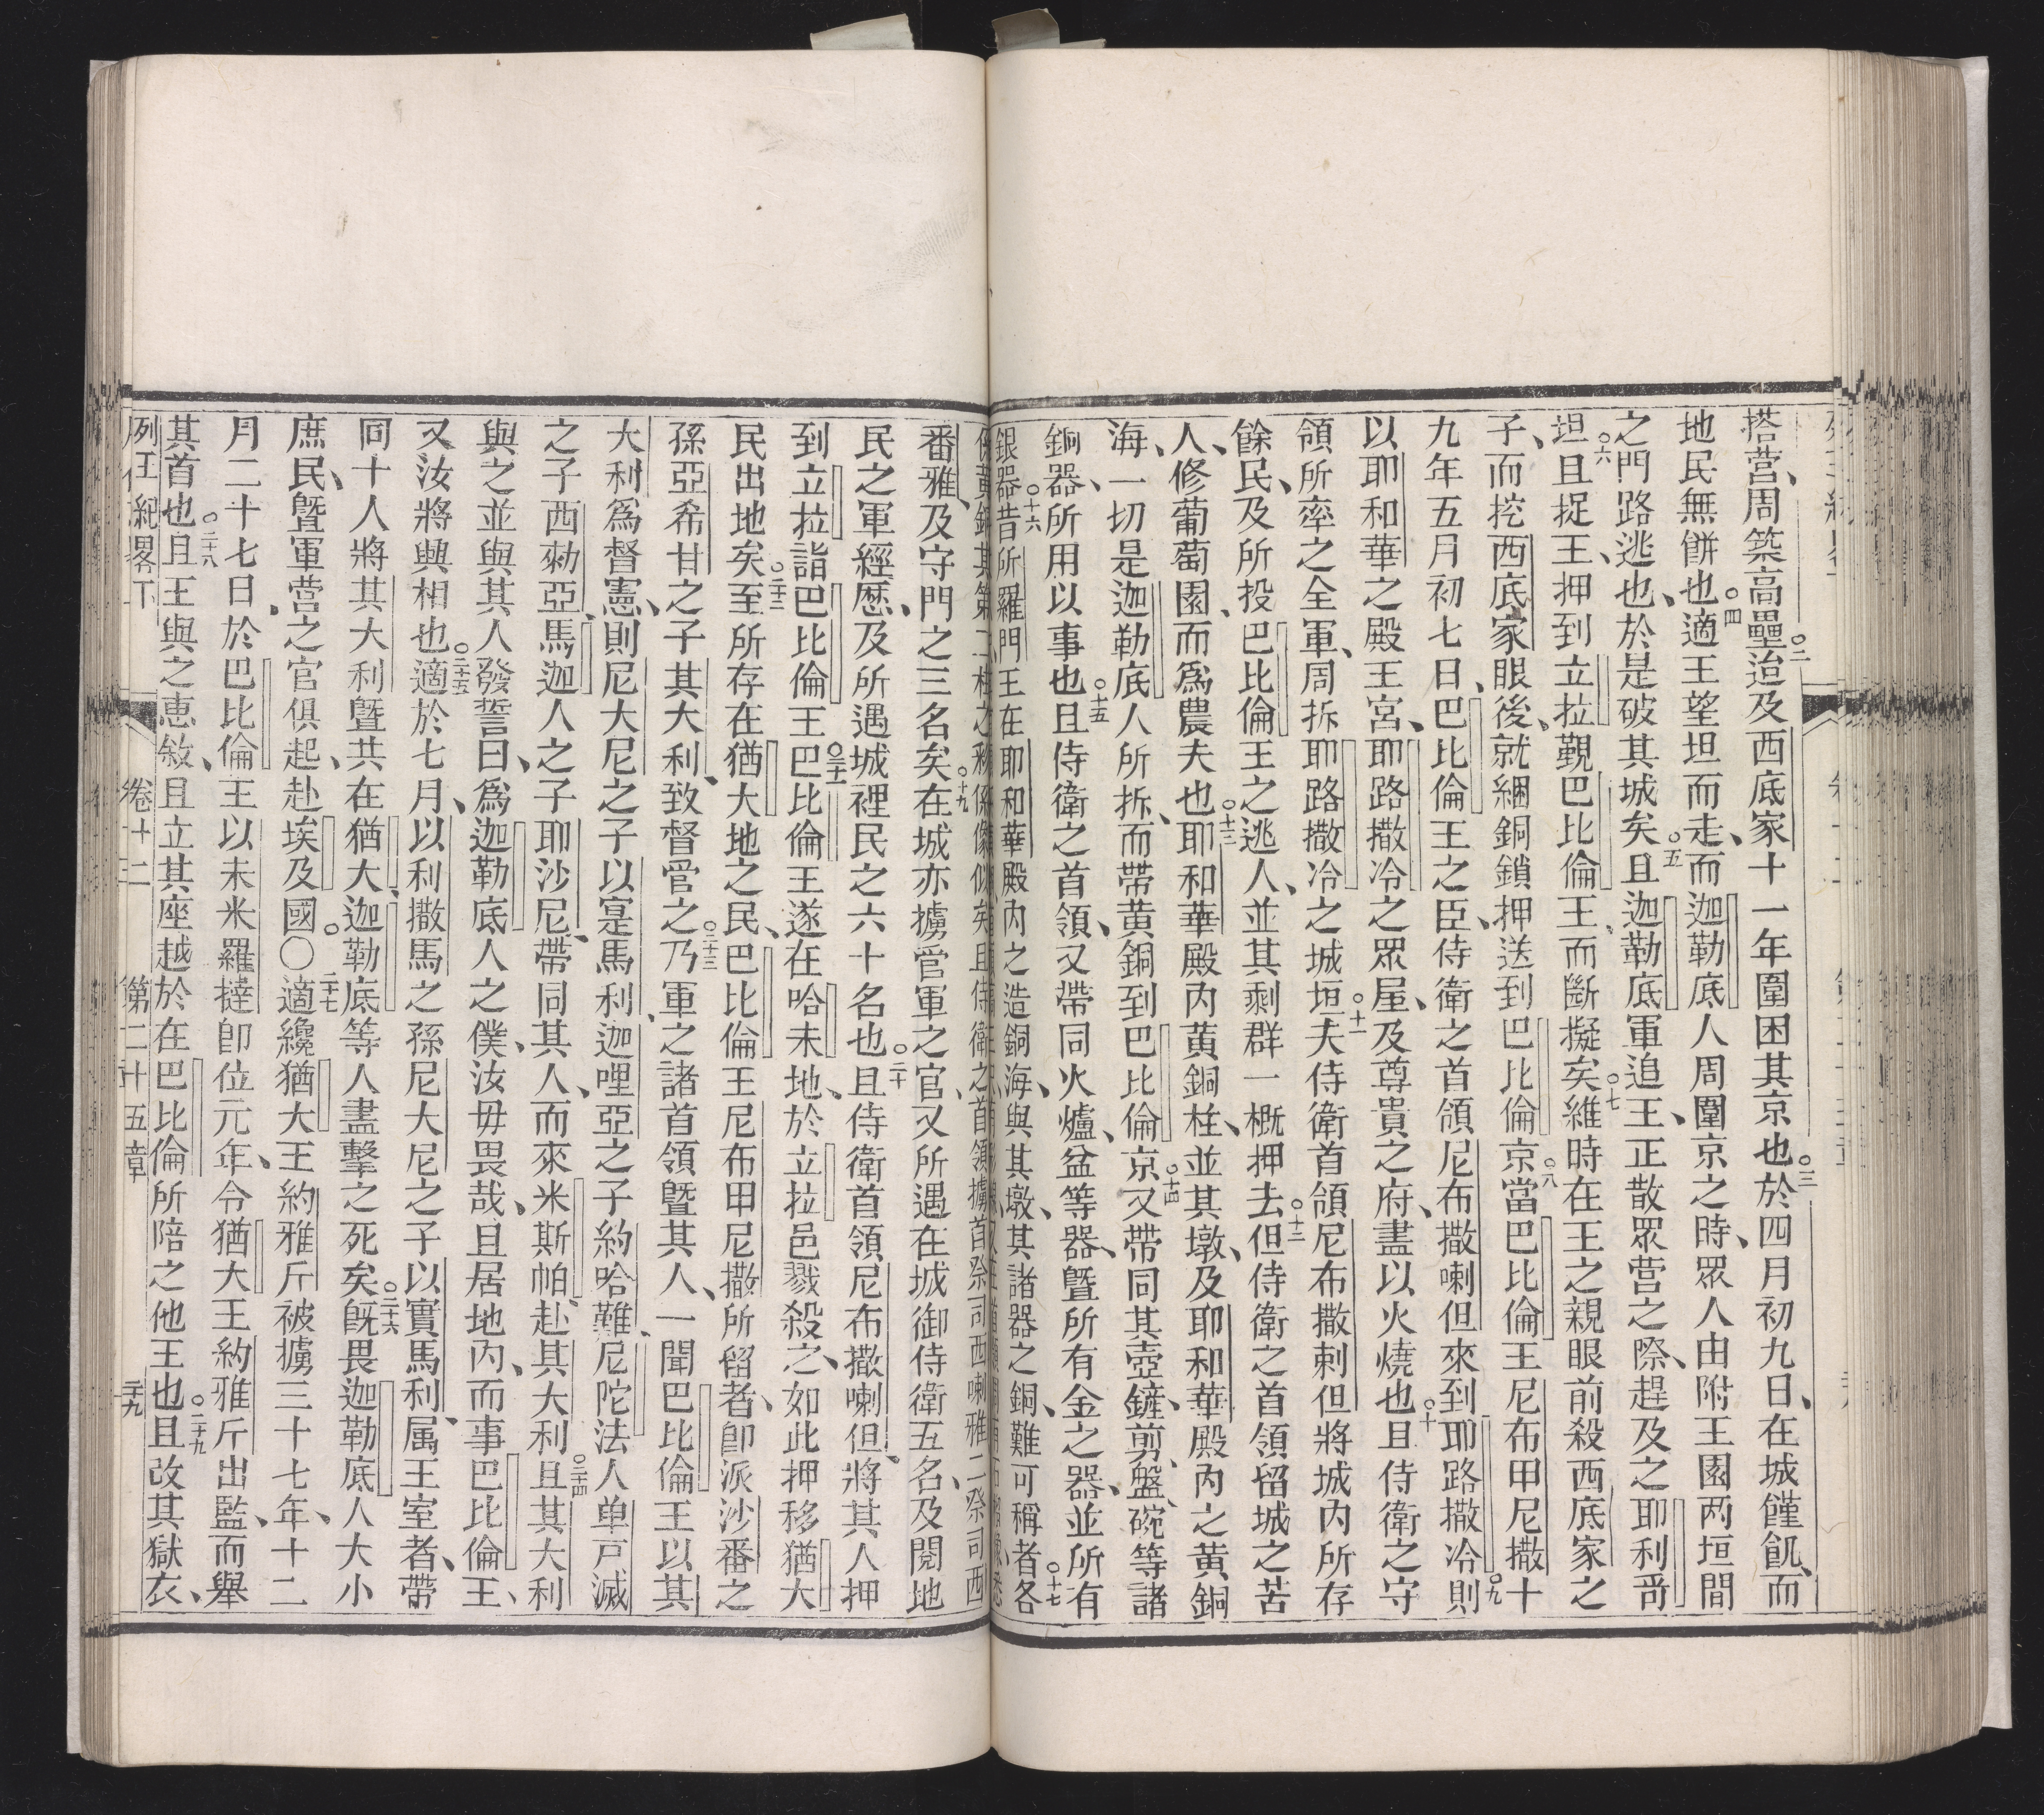 搭营、周築高壘、〇二迨及西底家十一年圍困其京也〇三於四月初九日、在城饉飢、而
地民無餅也〇四適王望坦而走、而迦勒底人周圍京之時、眾人由附王園两垣間
之門路逃也、於是破其城矣〇五且迦勒底軍追王、正散眾营之際、趕及之耶利哥
坦〇六且捉王、押到立拉覲巴比倫王、而斷擬矣〇七維時在王之親眼前殺西底家之
子、而挖西底家眼後、就綑銅鎖押送到巴比倫京〇八當巴比倫王尼布甲尼撒十
九年五月初七日、巴比倫王之臣、侍衛之首領尼布撒喇但來到耶路撒冷〇九則
以耶和華之殿王宮、耶路撒冷之眾屋、及尊貴之府、盡以火燒也〇十且侍衛之守
領所率之全軍、周拆耶路撒冷之城垣〇十一夫侍衛首領尼布撒剌但將城內所存
餘民、及所投巴比倫王之逃人、並其剩群一概押去〇十二但侍衛之首領留城之苦
人、修葡萄園、而為農夫也〇十三耶和華殿內黃銅柱、並其墩、及耶和華殿內之黃銅
海、一切是迦勒底人所拆、而帶黃銅到巴比倫京〇十四又帶同其壺、鏟、剪、盤、碗等諸
銅器、所用以事也〇十五且侍衛之首領、又帶同火爐、盆等器、暨所有金之器、並所有
銀器〇十六昔所羅門王在耶和華殿內之造銅海、與其墩、其諸器之銅、難可稱者各〇十七
番雅、及守門之三名矣〇十九在城亦擄管軍之官、又所遇在城御侍衛五名、及閱地
民之軍經歷、及所遇城裡民之六十名也〇二十且侍衛首領尼布撒喇但、將其人押
到立拉詣巴比倫王〇二十一巴比倫王遂在哈未地、於立拉邑戮殺之、如此押移猶大
民出地矣〇二十二至所存在猶大地之民、巴比倫王尼布甲尼撒所留者、卽派沙番之
孫亞希甘之子其大利、致督管之〇二十三乃軍之諸首領暨其人、一聞巴比倫王以其
大利為督憲、則尼大尼之子以寔馬利、迦哩亞之子約哈難、尼陀法人单戸滅
之子西勑亞、馬迦人之子耶沙尼、帶同其人、而來米斯帕、赴其大利〇二十四且其大利
與之並與其人發誓曰、為迦勒底人之僕、汝毋畏哉、且居地內、而事巴比倫王、
又汝將興相也〇二十五適於七月、以利撒馬之孫尼大尼之子以實馬利、属王室者、帶
同十人將其大利暨共在猶大、迦勒底等人盡擊之死矣〇二十六旣畏迦勒底人大小
庶民、暨軍营之官俱起、赴埃及國〇〇二十七適纔猶大王約雅斤被擄三十七年、十二
月二十七日、於巴比倫王以未米羅撻卽位元年、令猶大王約雅斤出監、而舉
其首也〇二十八且王與之恵敘、且立其座越於在巴比倫所陪之他王也〇二十九且改其獄衣、
列王紀畧下 卷十二 第二十五章 二十九